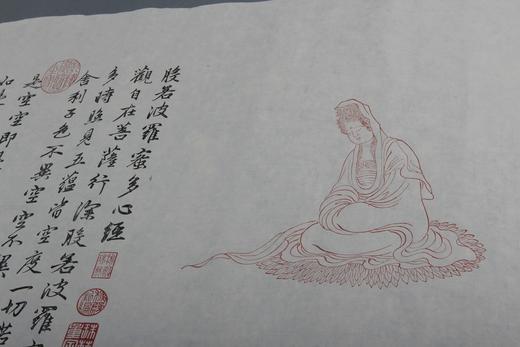 般若波羅蜜多心經
觀自在菩薩行深般若波羅
多時照見五蘊皆空度一切苦
舍利子色不異空空不異
是空空即是
如是